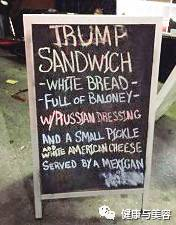 TRUMP
SANDWICH
-WHITE BREAD-
-FULL OF BALONEY-
W/RUSSIAN DRESSING
AND A SMALL PICKLE
AND WHITE AMERICAN CHEESE
SERVED BY A MEXICAN
健康与美容